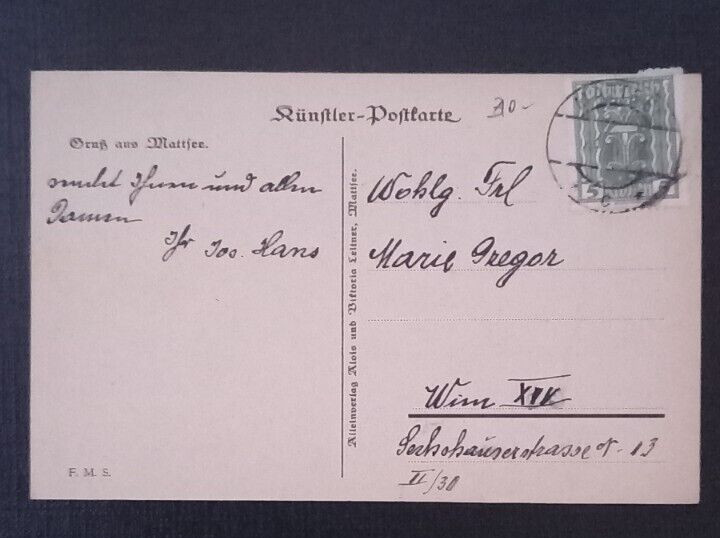 Künstler-Postkarte
20-
Gruß aus Mattsee.
sendet Ihnen und allen
Damen
Ihr Jos. Hans
Alleinverlag Alois und Viktoria Leitner, Mattsee.
Wohlg. Frl
Marie Gregor
Wien XIV
Sechshauserstrasse No 13
II/30
F. M. S.
5